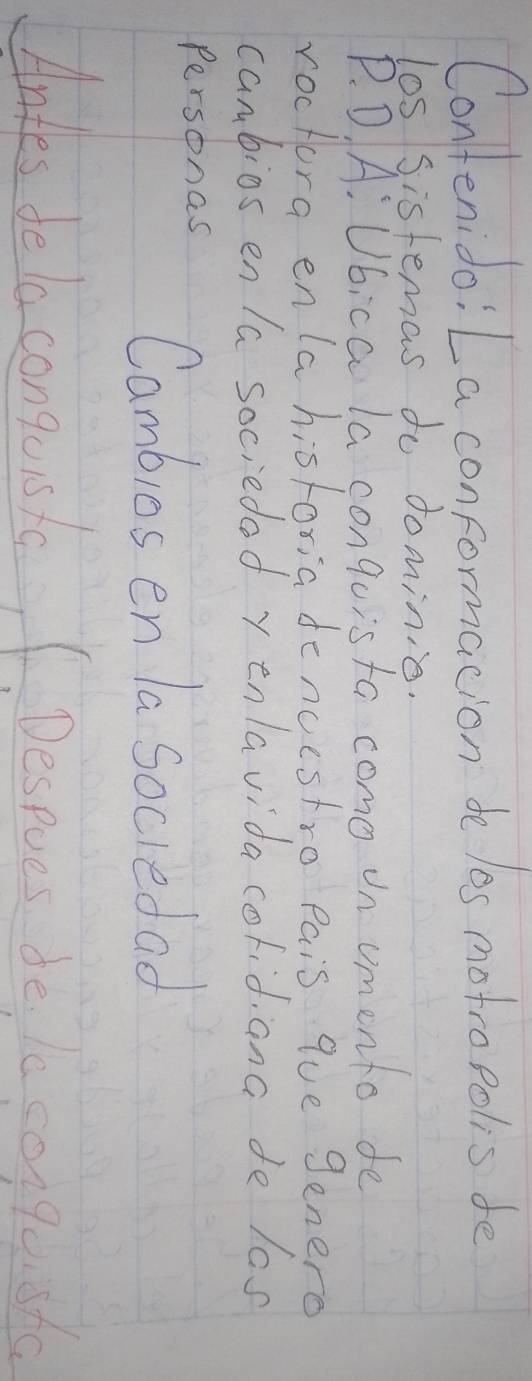 Contenido: La conformacion de las motropolis de
los sistemas de dominio.
P.D.A: Ubica la conquista como un umento de
roctura en la historia de nuestro Pais que genero
cambios en la sociedad y en la vida cotidiana de las
Personas
Cambios en la Sociedad
Antes de la conquista
Despues de la conquista